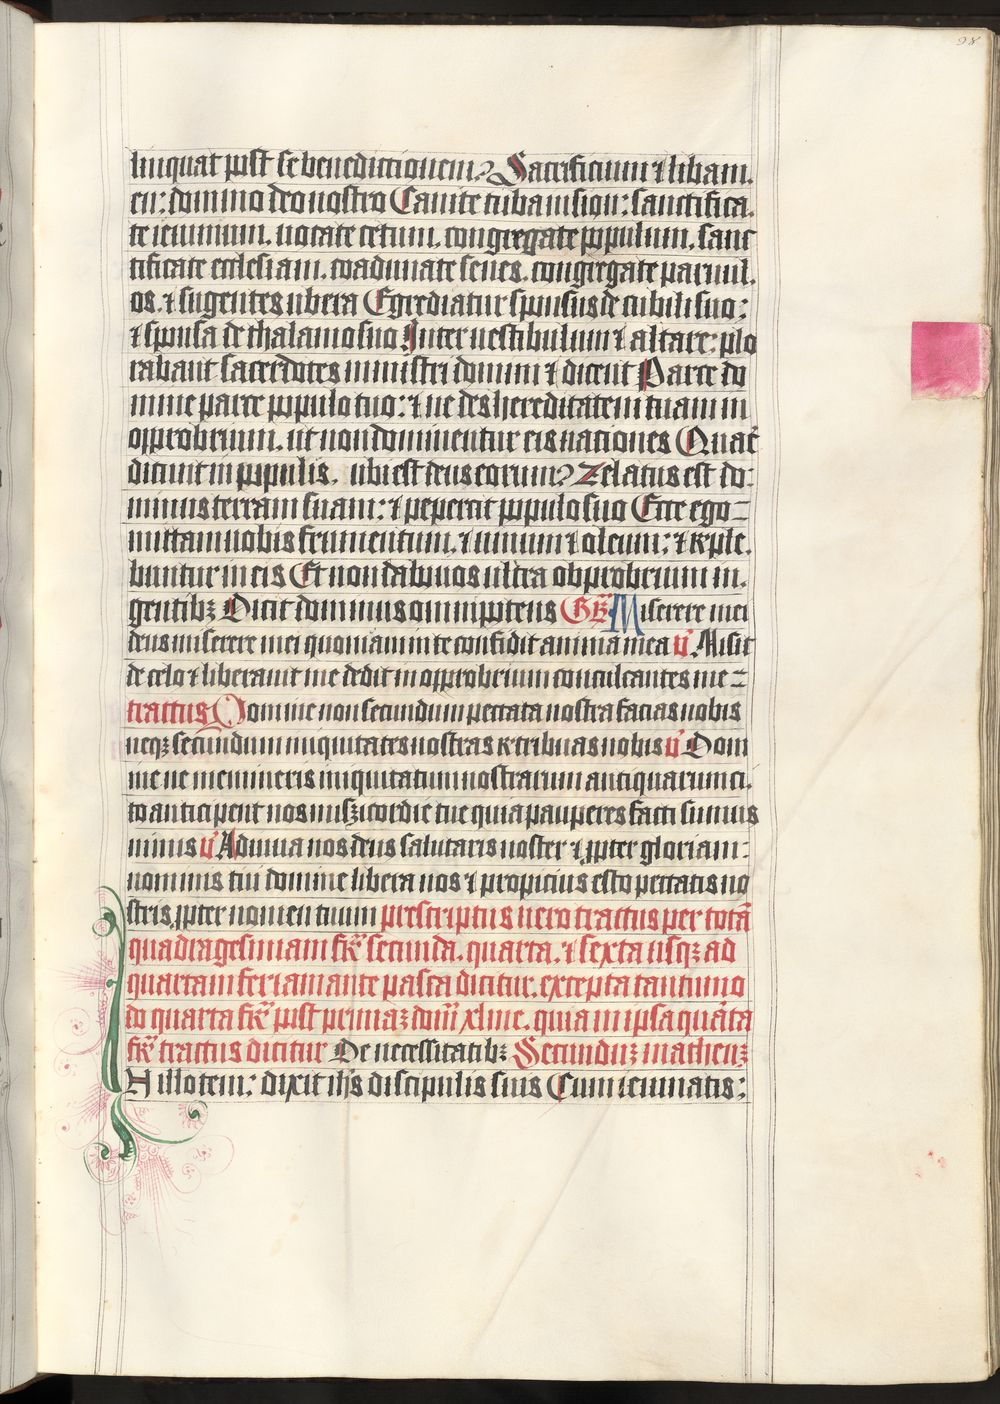 98
linquat post se benedictionem? Sacrificium ⁊ libam.
en: domino deo nostro Canite tuba in sion: sanctifica.
te ieiunium. uocate cetum. congregate populum. sanc
tificate ecclesiam. coadunate senes. congregate paruul.
os. ⁊ sugentes ubera Egrediatur sponsus de cubili suo:
⁊ sponsa de thalamo suo Inter uestibulum ⁊ altare: plo
rabant sacerdotes ministri domini ⁊ dicent Parce do
mine parce populo tuo: ⁊ ne des hereditatem tuam in
opprobrium. ut non dominentur eis nationes Quare
dicunt in populis. ubi est deus eorum? Zelatus est do:
minus terram suam: ⁊ pepercit populo suo Ecce ego
mittam uobis frumentum. ⁊ uinum ⁊ oleum: ⁊ reple.
buntur in eis Et non dabo uos ultra obprobrium in.
gentibꝫ Dicit dominus omnipotens Gr̄ Miserere mei
deus miserere mei quoniam in te confidit anima mea v̄ Misit
de celo ⁊ liberauit me dedit in opprobrium conculcantes me
tractus Domine non secundum peccata nostra facias nobis
neqꝫ secundum iniquitates nostras retribuas nobis v̄ Dom
ine ne memineris iniquitatum nostrarum antiquarum ci.
to anticipent nos misꝫicordie tue quia pauperes facti sumus
nimis v̄ Adiuua nos deus salutaris noster ⁊ ꝓpter gloriam:
nominis tui domine libera nos ⁊ propicius esto peccatis no
stris ꝓpter nomen tuum prescriptus uero tractus per totā
quadragesimam fr̄ secunda. quarta. ⁊ sexta usqꝫ ad
quartam feriam ante pasca dicitur. excepta tantummo
do quarta fr̄ post primaꝫ dom̄ xlme. quia in ipsa quarta
fr̄ tractus dicitur De necessitatibꝫ Secunduꝫ matheuꝫ
In illo tem: dixit ihs̄ discipulis suis Cum ieiunatis: